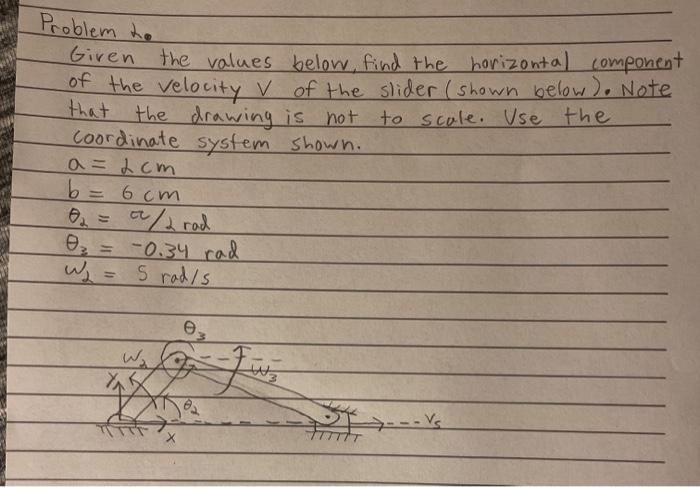 Problem 2.
Given the values below, find the horizontal component
of the velocity V of the slider (shown below). Note
that the drawing is not to scale. Use the
coordinate system shown.
a = 2 cm
b = 6 cm
θ₂ = π/2 rad
θ₃ = -0.34 rad
W₂ = 5 rad/s
θ₃
W₂
W₃
Y
θ₂
Vs
X